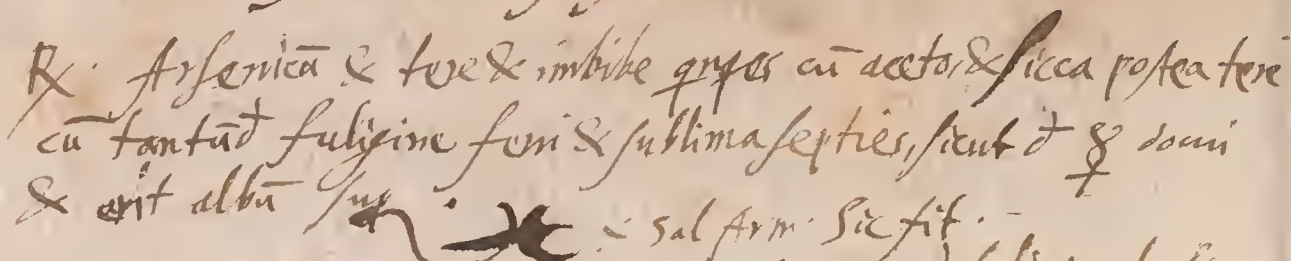 ℞. Arsenicū & tere & imbibe qnqes cū aceto, & sicca postea tere
cū tantūd fuligine ferri & sublima septies, sicut đ ☿ docui
& erit albū sup
& sal Arm. Sic fit.